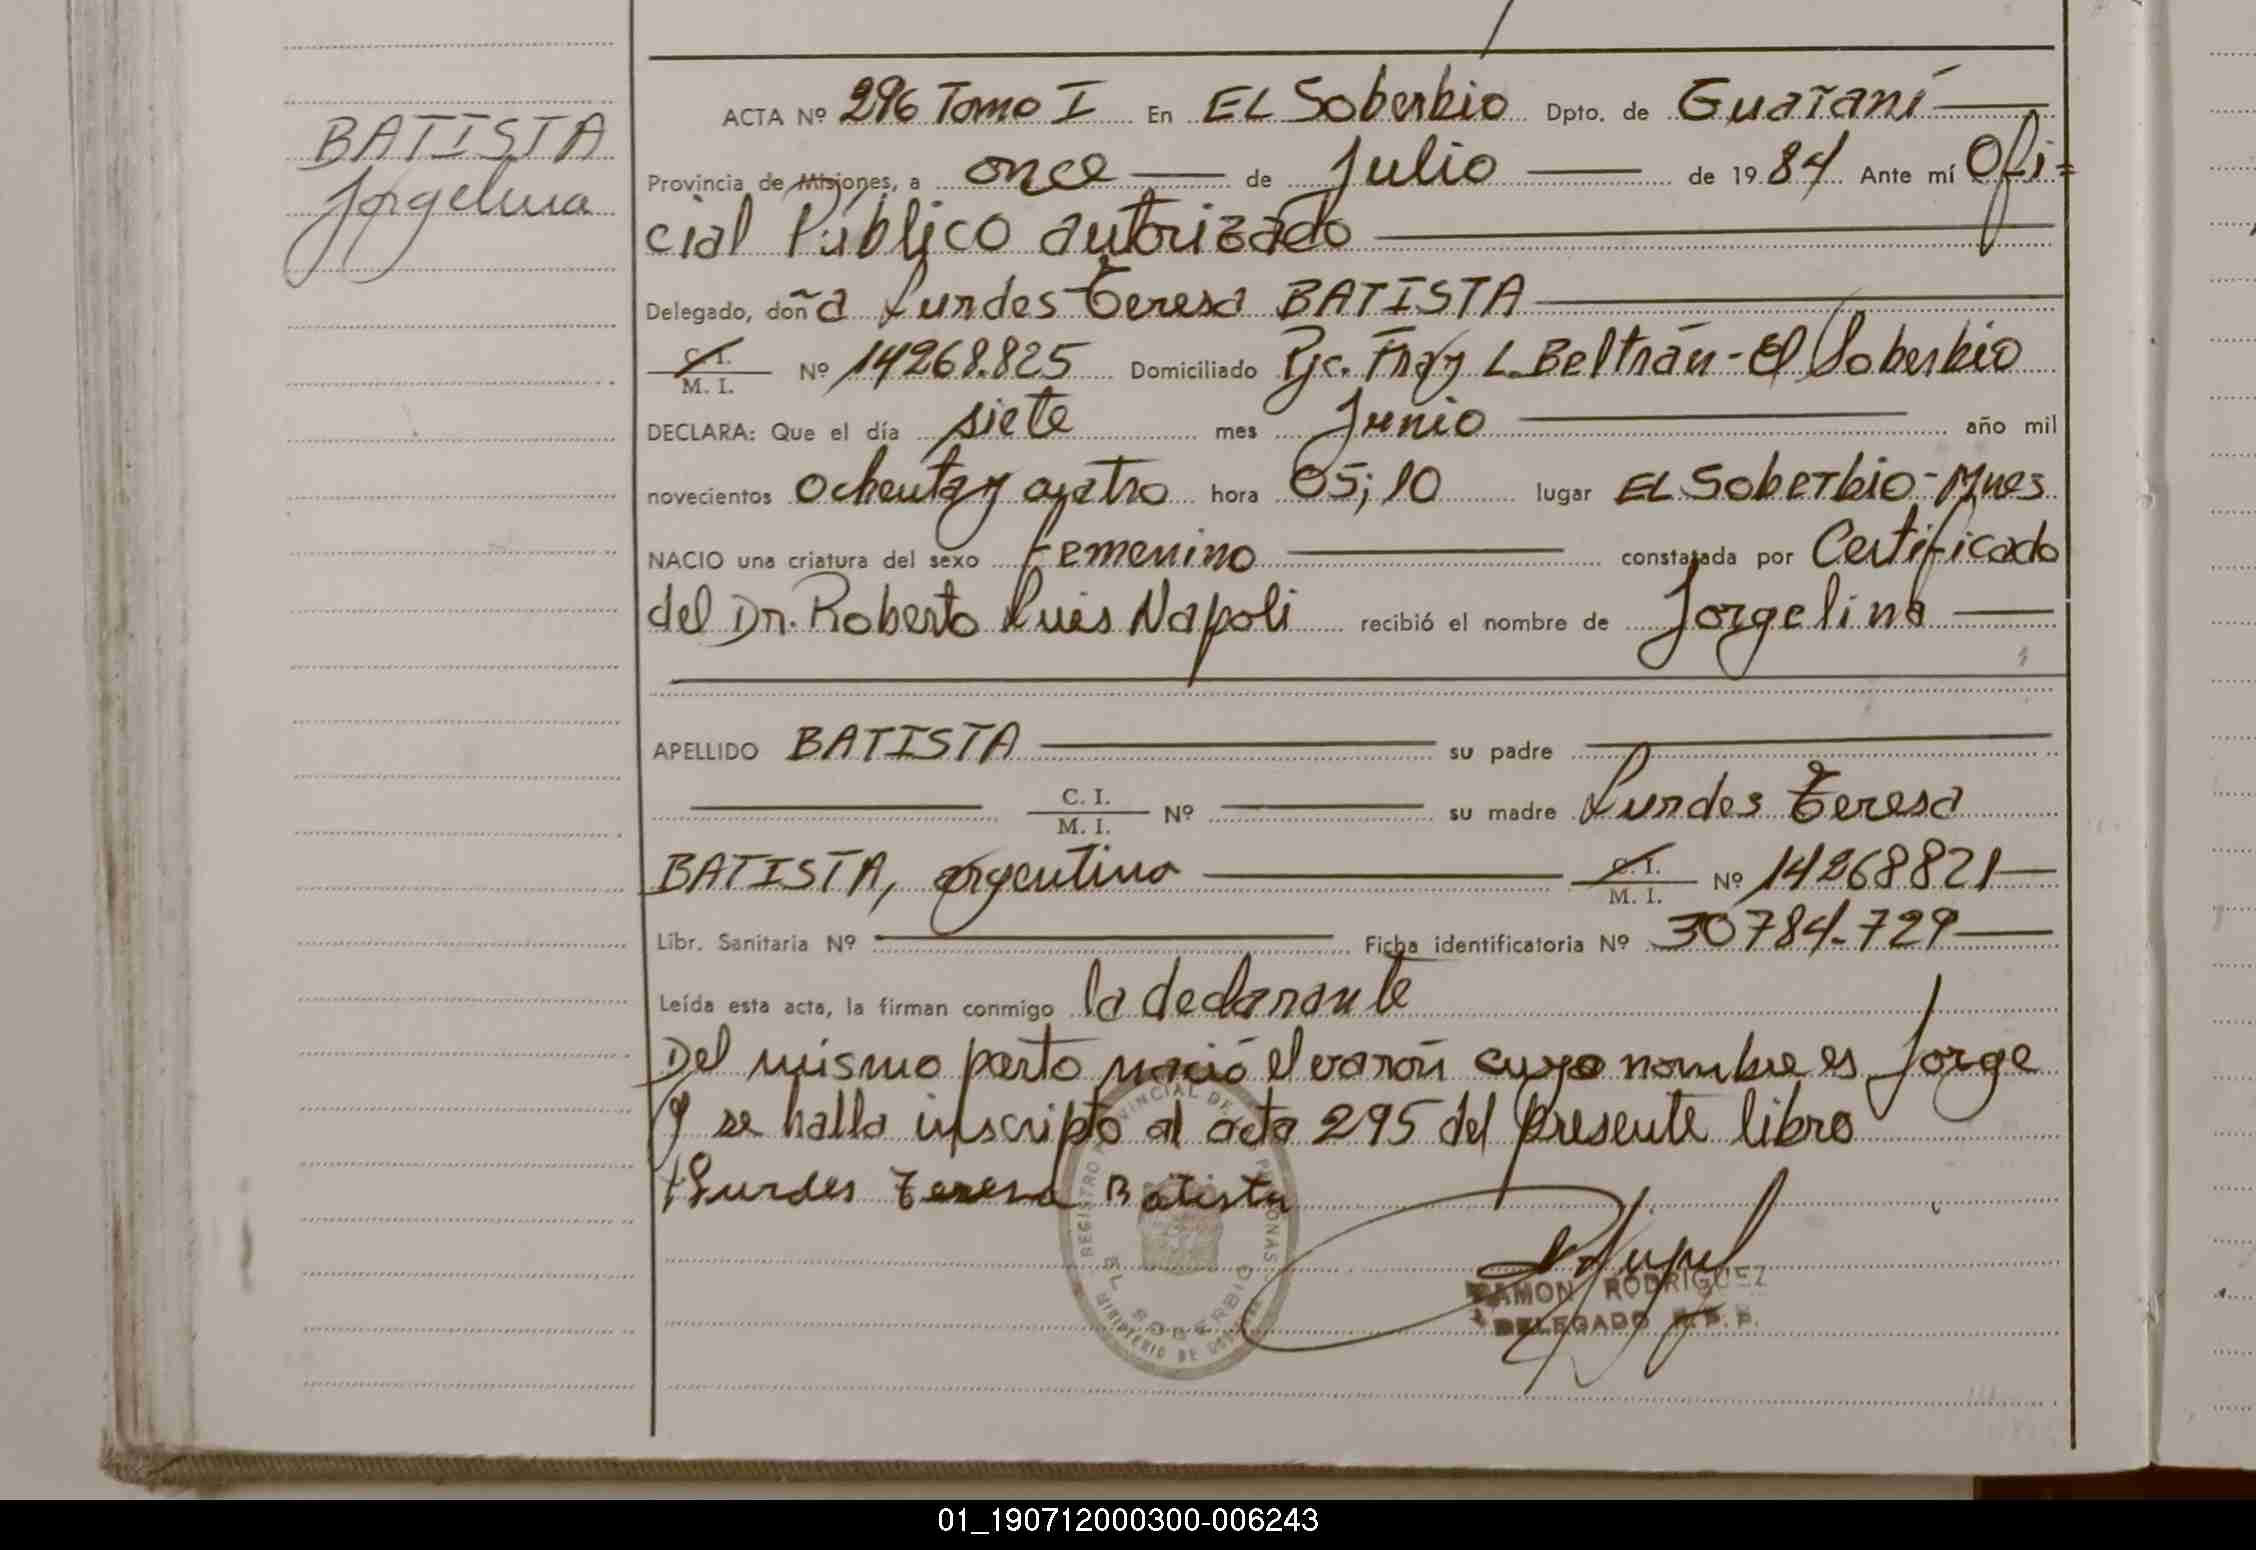 BATISTA
Jorgelina
ACTA Nº 296 Tomo I En EL Soberbio Dpto. de Guaraní
Provincia de Misiones, a once de Julio de 1984 Ante mí Ofi=
cial Público autorizado
Delegado, doña Lurdes Teresa BATISTA
C. I.
M. I. Nº 14268.825 Domiciliado Pje. Fray L. Beltrán - El Soberbio
DECLARA: Que el día siete mes Junio año mil
novecientos ochenta y cuatro hora 05;10 lugar EL Soberbio - Mnes
NACIO una criatura del sexo Femenino constatada por Certificado
del Dr. Roberto Luis Napoli recibió el nombre de Jorgelina
APELLIDO BATISTA su padre
C. I.
M. I. Nº su madre Lurdes Teresa
BATISTA, argentina C. I.
M. I. Nº 14268821
Libr. Sanitaria Nº Ficha identificatoria Nº 30784.729
Leída esta acta, la firman conmigo la declarante
Del mismo parto nació el varón cuyo nombre es Jorge
y se halla inscripto al acta 295 del presente libro
Lurdes Teresa Batista
REGISTRO PROVINCIAL DE LAS PERSONAS
EL SOBERBIO
MINISTERIO DE GOBIERNO
RAMON RODRIGUEZ
DELEGADO R. P. P.
01_190712000300-006243